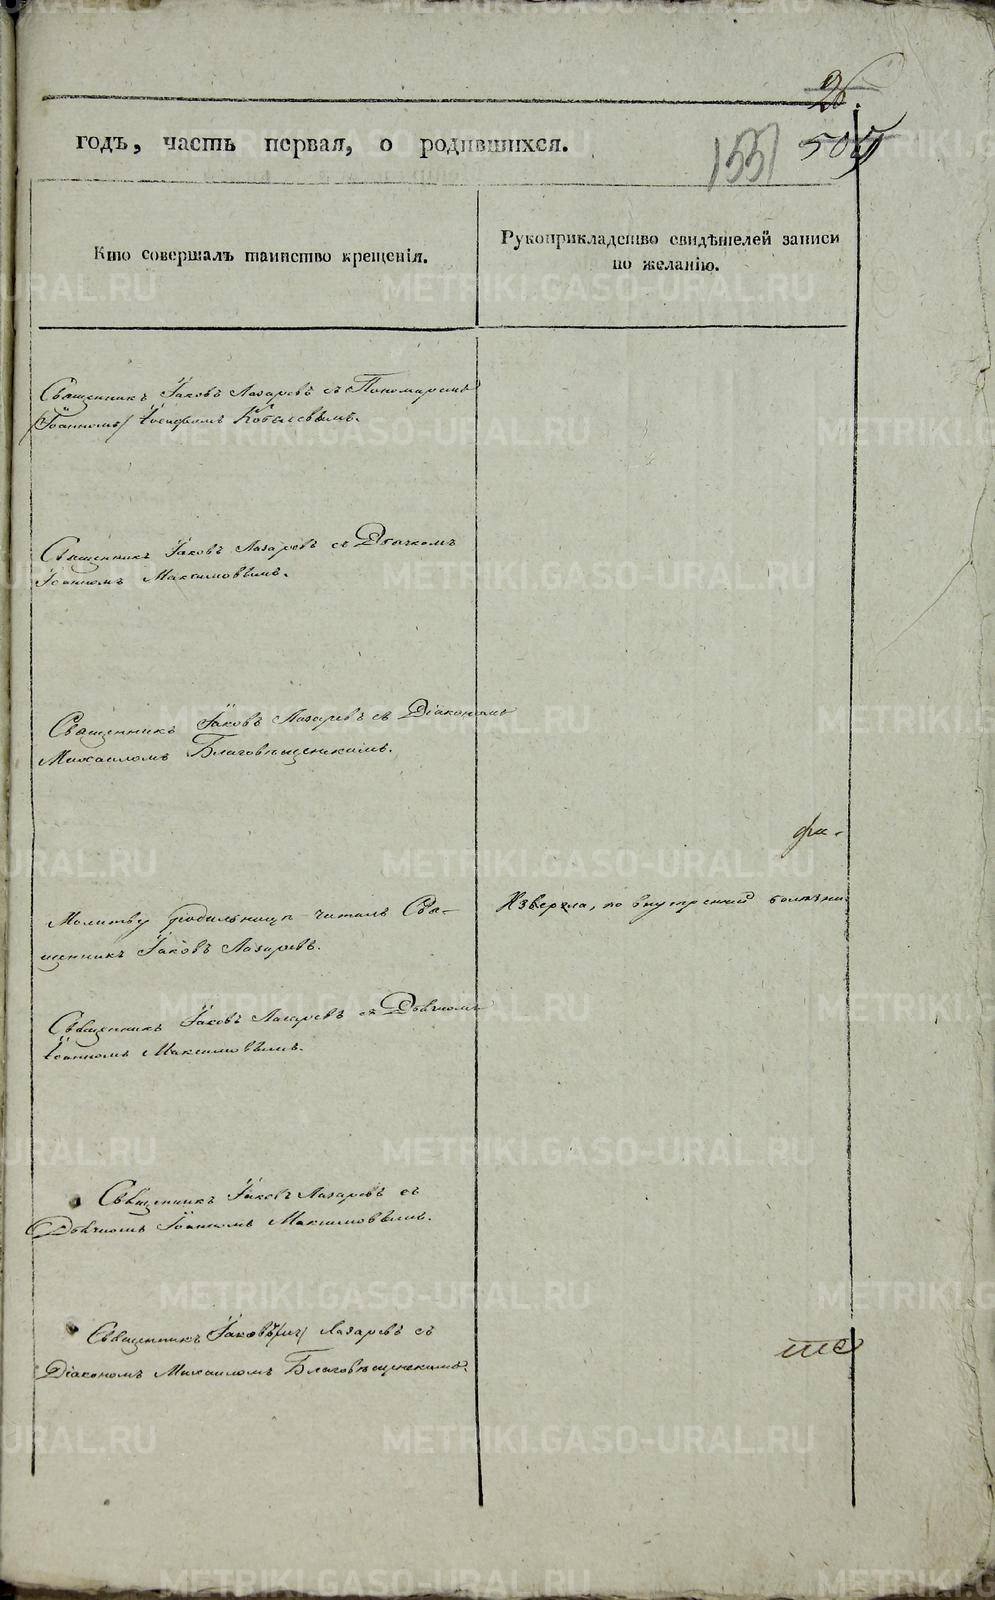 26.
годъ, часть первая, о родившихся.
1551 505
Кто совершалъ таинство крещенія.
Рукоприкладство свидѣтелей записи
по желанію.
Священникъ Іаковъ Лазаревъ съ Пономаремъ
(Іоанномъ) Іосифомъ
Священникъ Іаковъ Лазаревъ съ Дьячкомъ
Іоанномъ Максимовымъ.
Священникъ Іаковъ Лазаревъ съ Діакономъ
Михаиломъ Благовѣщенскимъ.
Молитву родильницѣ читалъ Свя-
щенникъ Іаковъ Лазаревъ.
Извергла, по внутренней болѣзни.
Священникъ Іаковъ Лазаревъ съ Дьячкомъ
Іоанномъ Максимовымъ.
Священникъ Іаковъ Лазаревъ съ
Дьячкомъ Іоанномъ Максимовымъ.
Священникъ Іаковъ Лазаревъ съ
Діакономъ Михаиломъ Благовѣщенскимъ.
METRIKI.GASO-URAL.RU